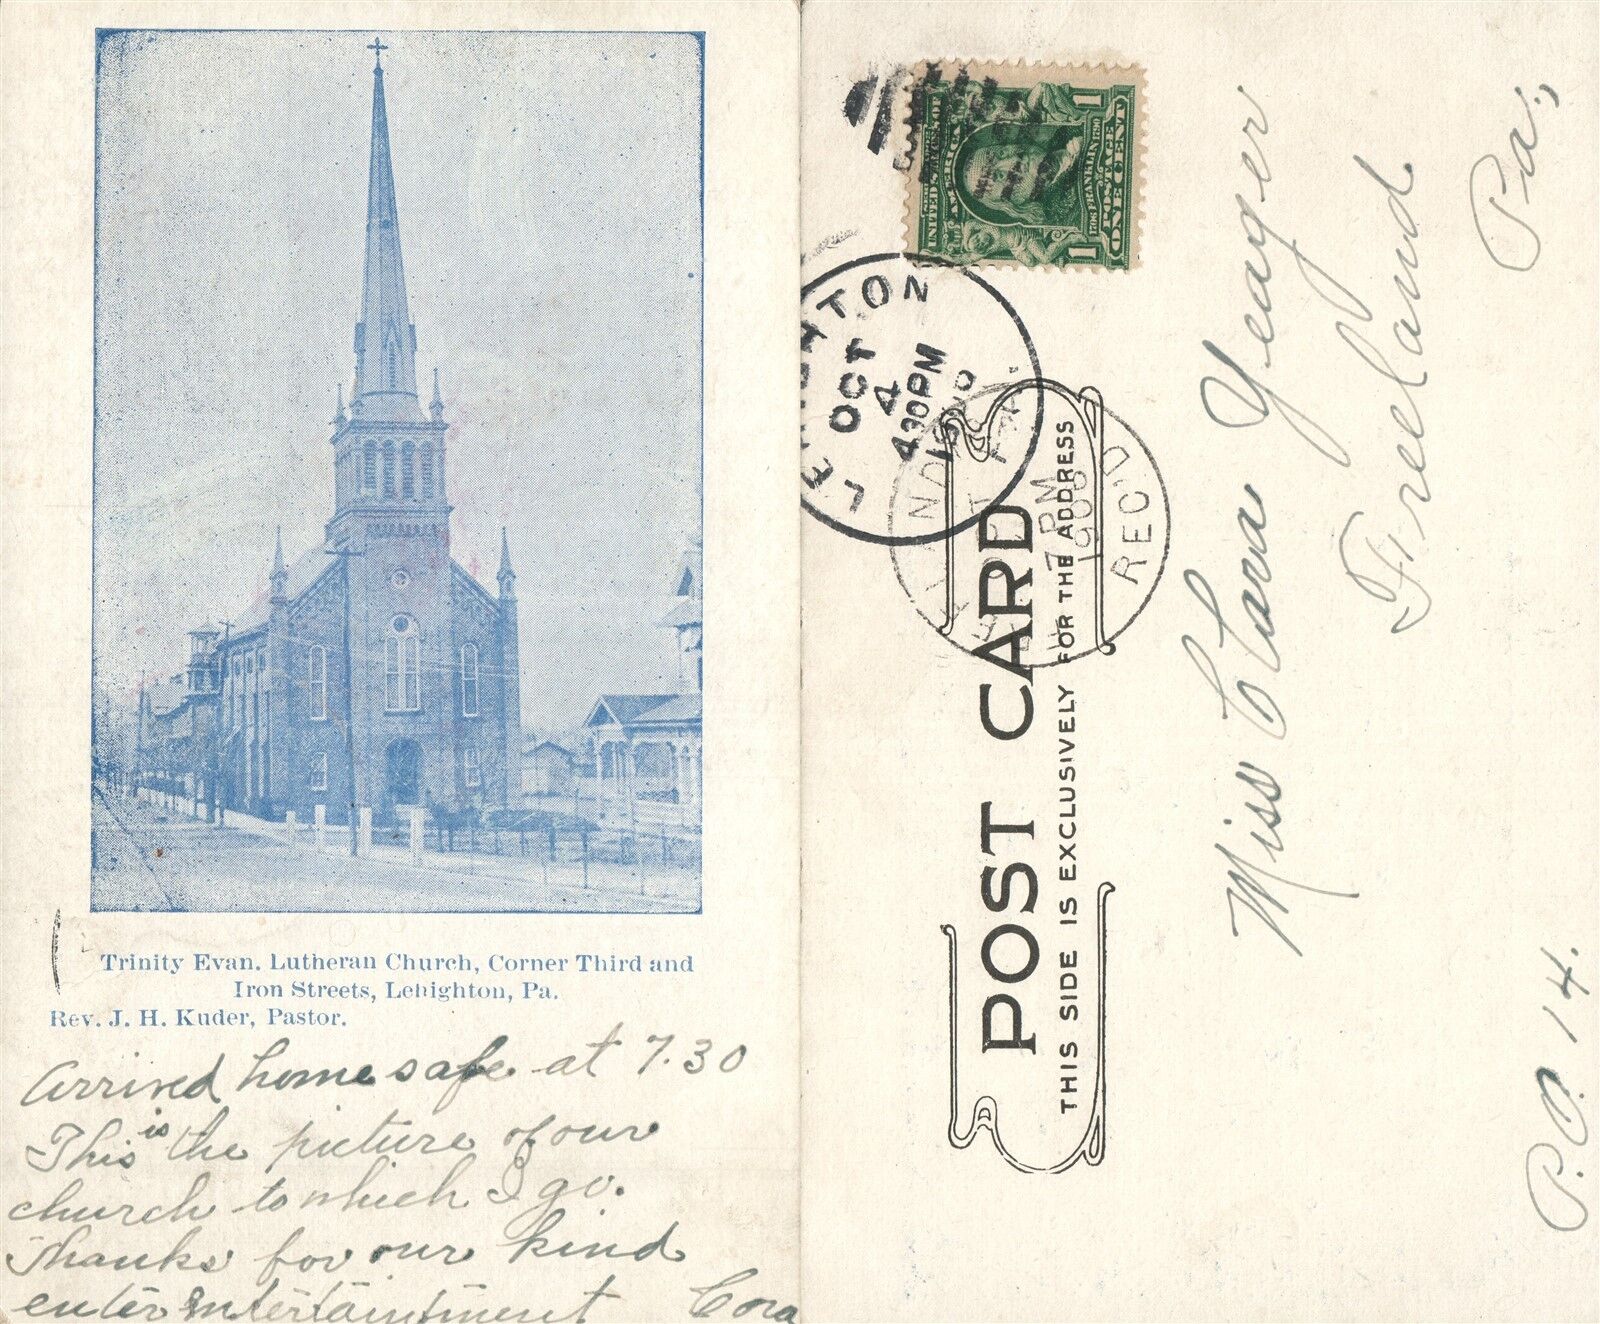 Trinity Evan. Lutheran Church, Corner Third and
Iron Streets, Lehighton, Pa.
Rev. J. H. Kuder, Pastor.
Arrived home safe at 7.30
This is the picture of our
church to which I go.
Thanks for our kind
entertainment Cora
UNITED STATES OF AMERICA
1706 FRANKLIN 1790
POSTAGE
ONE CENT
1 1
LEHIGHTON
OCT
4
430PM
FREELAND
7 PM
1906
REC'D
POST CARD
THIS SIDE IS EXCLUSIVELY FOR THE ADDRESS
Miss Clara Yeager
Freeland
Pa.,
P.O. 14.